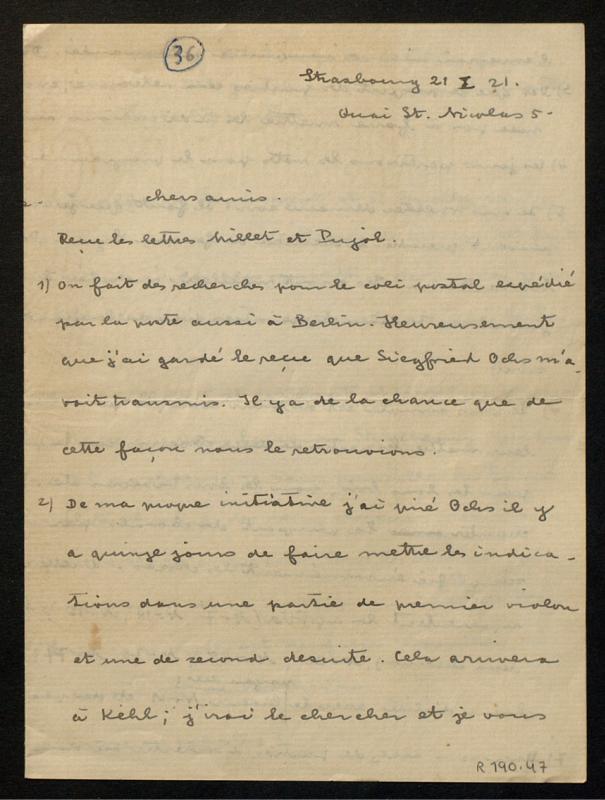 36
Strasbourg 21 I 21.
Quai St. Nicolas 5-
chers amis.
Reçu les lettres Millet et Pujol.
1) On fait des recherches pour le coli postal expédié
par la poste aussi à Berlin. Heureusement
que j'ai gardé le reçu que Siegfried Ochs m'a-
voit transmis. Il y a de la chance que de
cette façon nous le retrouvions.
2) De ma propre initiative j'ai prié Ochs il y
a quinze jours de faire mettre les indica-
tions dans une partie de premier violon
et une de second desuite. Cela arrivera
à Kehl; j'irai le chercher et je vous
R 190.47